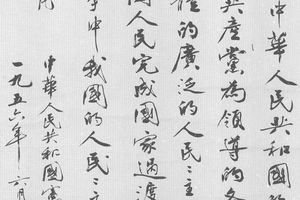 中華人民共和國的
共產黨為領導的各
體的廣泛的人民〻主
國人民完成國家過渡
中我國的人民〻主
中華人民共和國憲
一九五六年六月